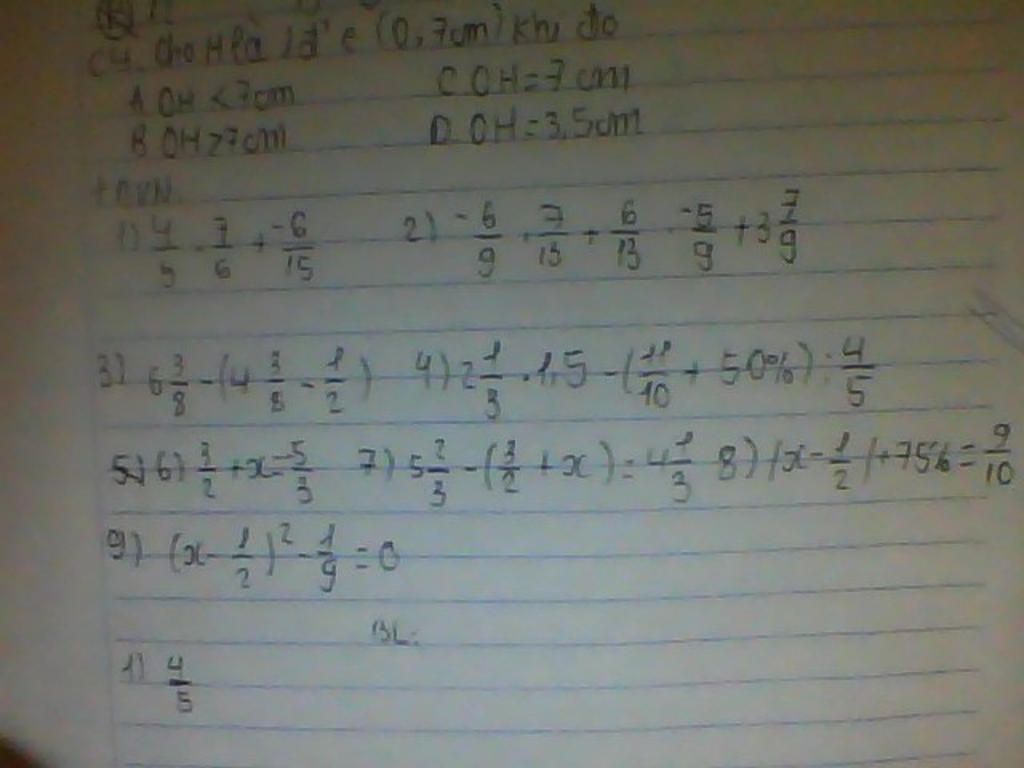 C4. Cho H là 1 đ' ∈ (O, 7cm) khi đó
A OH < 7cm C OH = 7cm
B OH > 7cm D OH = 3,5cm
1) 4/5 . 7/6 + -6/15 2) -6/9 . 7/13 + 6/13 . -5/9 + 3 7/9
3) 6 3/8 - (4 3/8 - 1/2) 4) 2 1/3 . 1,5 - (11/10 + 50%) : 4/5
5) 6) 3/2 + x = -5/3 7) 5 2/3 - (3/2 + x) = 4 1/3 8) |x - 1/2| + 75% = 9/10
9) (x - 1/2)² - 1/9 = 0
BL:
1) 4/5